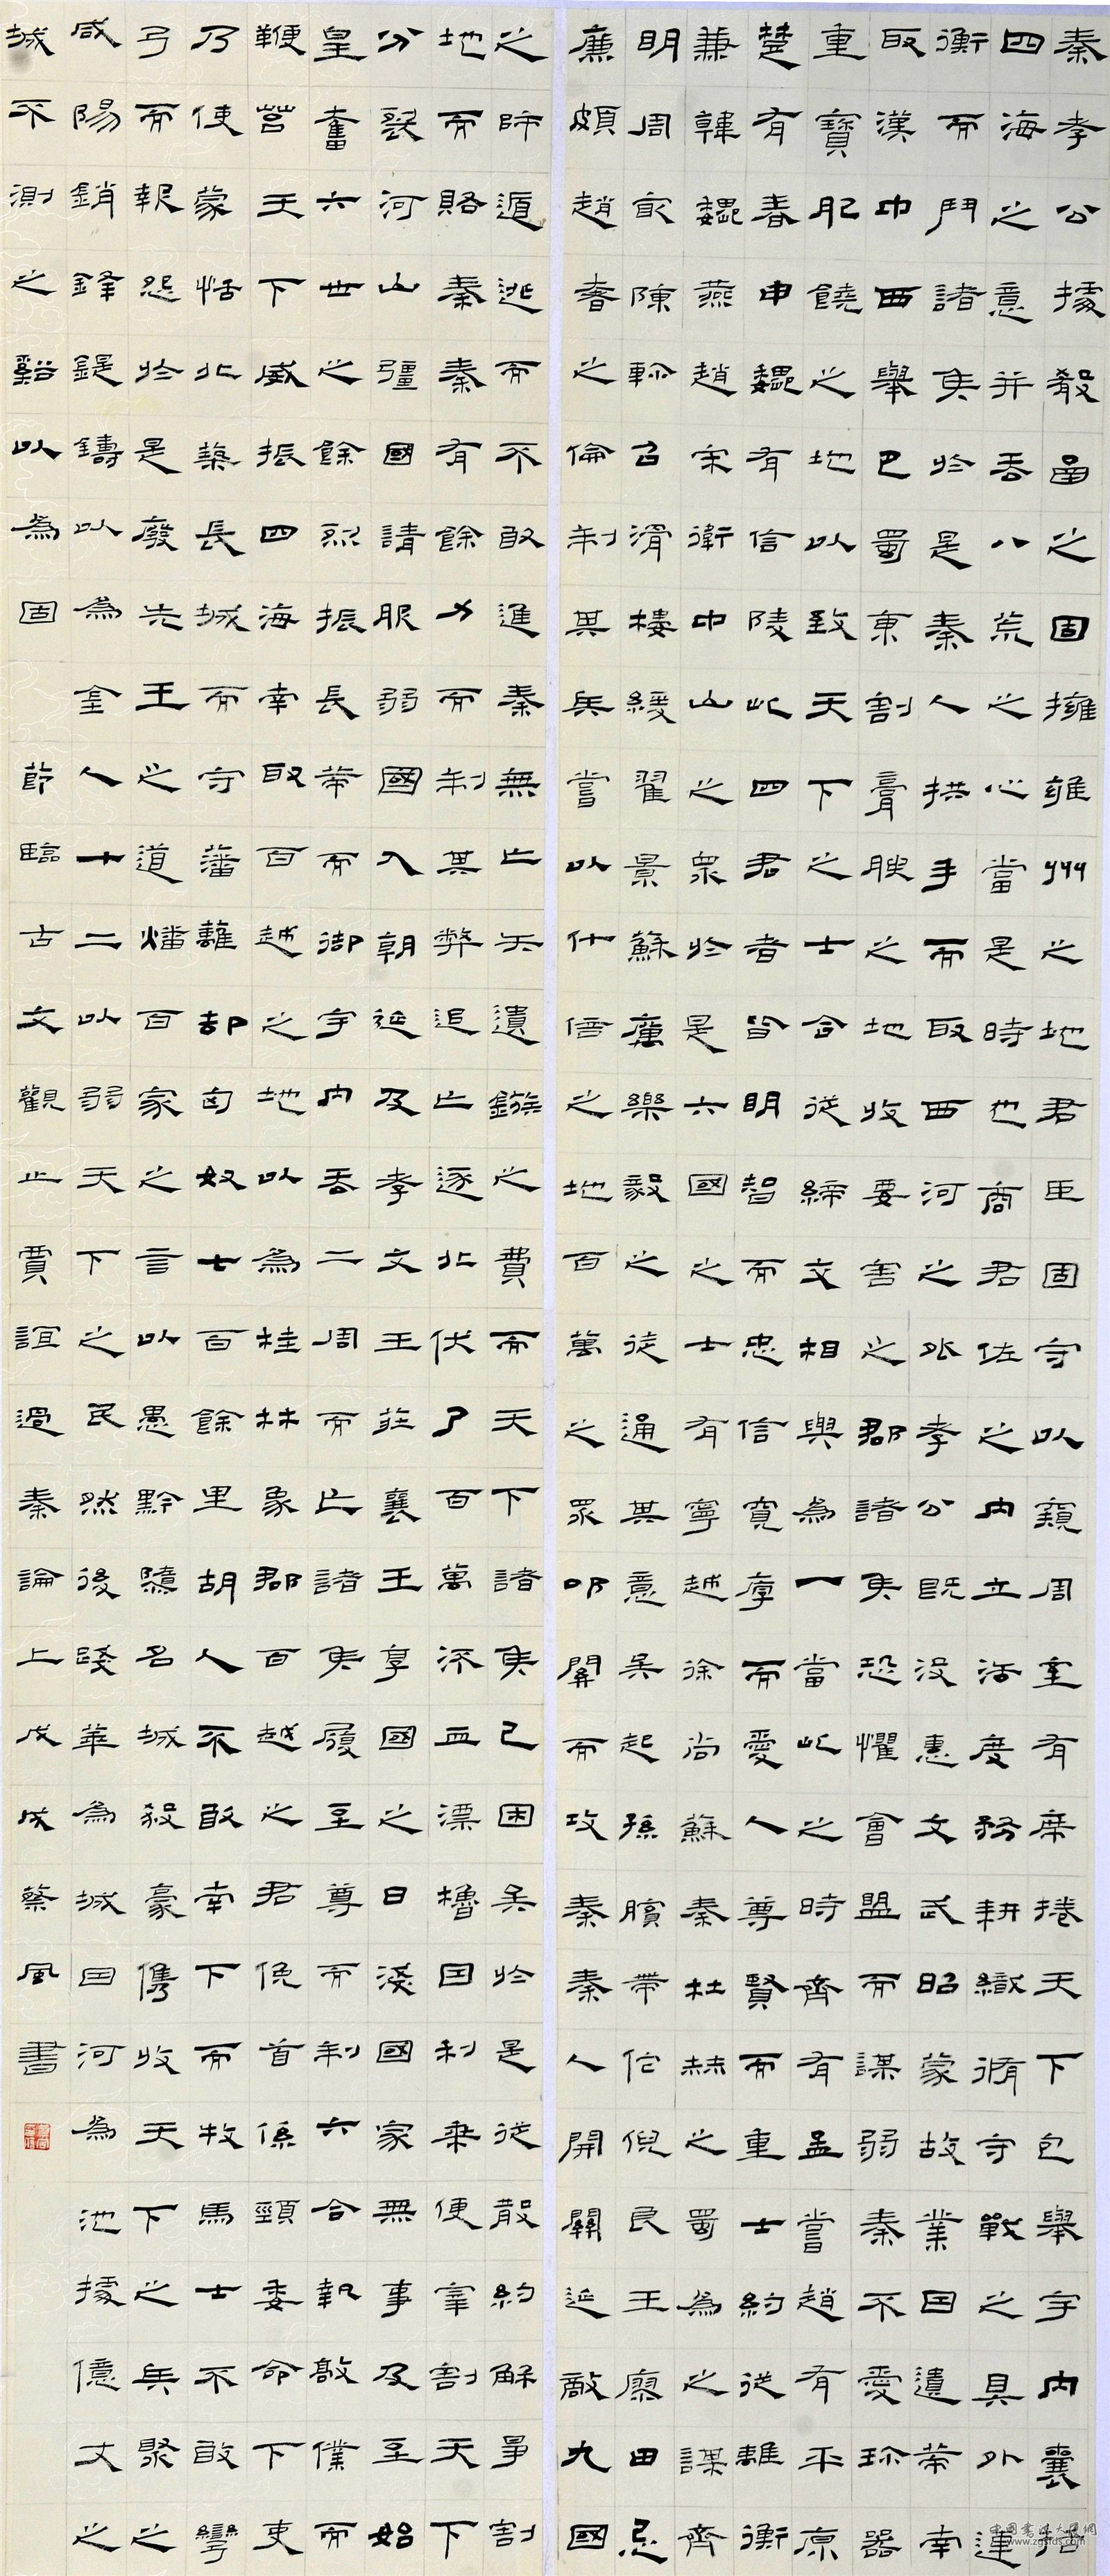 秦孝公據殽函之固擁雍州之地君臣固守以窺周室有席捲天下包舉宇內囊括
四海之意并吞八荒之心當是時也商君佐之內立法度務耕織脩守戰之具外連
衡而鬥諸侯於是秦人拱手而取西河之外孝公既沒惠文武昭蒙故業因遺策南
取漢中西舉巴蜀東割膏腴之地收要害之郡諸侯恐懼會盟而謀弱秦不愛珍器
重寶肥饒之地以致天下之士合從締交相與為一當此之時齊有孟嘗趙有平原
楚有春申魏有信陵此四君者皆明智而忠信寬厚而愛人尊賢而重士約從離衡
兼韓魏燕趙宋衛中山之眾於是六國之士有寧越徐尚蘇秦杜赫之蜀為之謀齊
明周最陳軫召滑樓緩翟景蘇厲樂毅之徒通其意吳起孫臏帶佗倪民王廖田忌
廉頗趙奢之倫制其兵嘗以什倍之地百萬之眾叩關而攻秦秦人開關延敵九國
之師遁逃而不敢進秦無亡矢遺鏃之費而天下諸侯已困矣於是從散約解爭割
地而賂秦秦有餘力而制其弊追亡逐北伏了百萬流血漂櫓因利乘便宰割天下
分裂河山彊國請服弱國入朝延及孝文王莊襄王享國之日淺國家無事及至始
皇奮六世之餘烈振長策而御宇內吞二周而亡諸侯履至尊而制六合執敲僕而
鞭笞天下威振四海南取百越之地以為桂林象郡百越之君俛首係頸委命下吏
乃使蒙恬北築長城而守藩籬却匈奴七百餘里胡人不敢南下而牧馬士不敢彎
弓而報怨於是廢先王之道燔百家之言以愚黔隳名城殺豪儁收天下之兵聚之
咸陽銷鋒鍉鑄以為金人十二以弱天下之民然後踐華為城因河為池據億丈之
城不測之谿以為固 節臨古文觀止賈誼過秦論上戊戌蔡風書